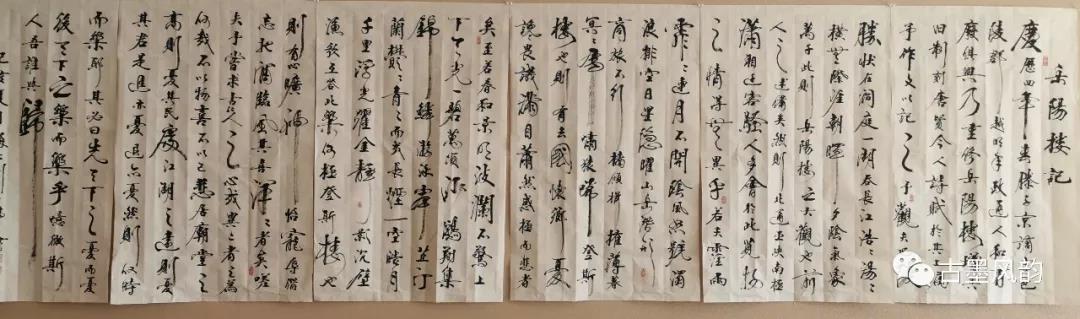 岳陽楼记
慶曆四年春滕子京谪巴
陵郡越明年政通人和百
廢俱興乃重修岳陽楼增其
旧制刻唐贤今人詩賦於其上属
予作文以记之予觀夫巴
陵勝状在洞庭一湖
長江浩浩湯湯
朝暉夕陰氣象
萬千此则岳陽楼之大觀也前
人之述備矣然则北通巫峡南極
瀟湘迁客騷人多會於此覽物
之情得無異乎若夫霪雨
霏霏連月不開陰風怒號濁
浪排空日星隐曜山岳潜形
商旅不行樯傾楫摧薄暮
冥冥虎嘯猿啼登斯
楼也则有去國懷鄉憂
讒畏譏满目蕭然感極而悲者
矣至若春和景明波瀾不驚上
下天光一碧萬顷沙鷗翔集
錦鱗游泳岸芷汀
蘭郁郁青青而或長煙一空皓月
千里浮光躍金静影沉壁
漁歌互答此樂何極登斯楼也
则有心曠神怡寵辱偕
忘把酒臨風其喜洋洋者矣嗟
夫予嘗求古仁人之心或異二者之為
何哉不以物喜不以己悲居廟堂之
高则憂其民處江湖之遠则
憂其君是進亦憂退亦憂然则何時
而樂耶其必曰先天下之憂而憂
後天下之樂而樂乎噫微斯
人吾誰與歸
古墨风韵